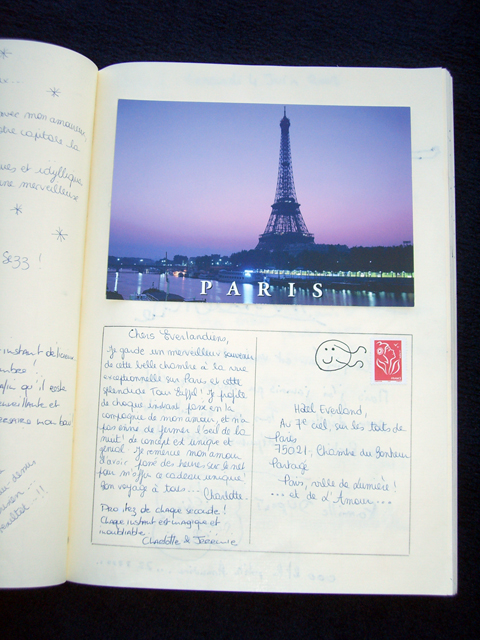 avec mon amoureux,
capitale la
et idyllique
une merveilleuse
Se33 !
PARIS
Chers Everlandiens,
Je garde un merveilleux souvenir
de cette belle chambre à la vue
exceptionnelle sur Paris et cette
splendide Tour Eiffel ! Je profite
de chaque instant passé en la
compagnie de mon amour, et n'ai
pas envie de fermer l'œil de la
nuit ! Ce concept est unique et
génial. Je remercie mon amour
d'avoir passé des heures sur le net
pour m'offrir ce cadeau unique !
Bon voyage à tous... Charlotte.
de chaque seconde !
Chaque instant est magique et
inoubliable
Charlotte & Jérémie
Hôtel Everland,
Au 7e ciel, sur les toits de
Paris
75021, Chambre du Bonheur
Partagé
Paris, ville de lumière !
... et de d'Amour ...